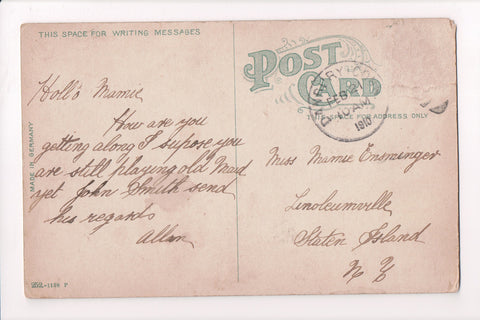 THIS SPACE FOR WRITING MESSAGES
Hollo Mamie
How are you
getting along I supose you
are still playing old Maid
yet John Smith send
his regards
Allen
MADE IN GERMANY
1198 P
POST CARD
THIS SPACE FOR ADDRESS ONLY
DANBURY CONN
FEB 21
10 AM
1910
Miss Mamie Ensminger
Linoleumville
Staten Island
N Y